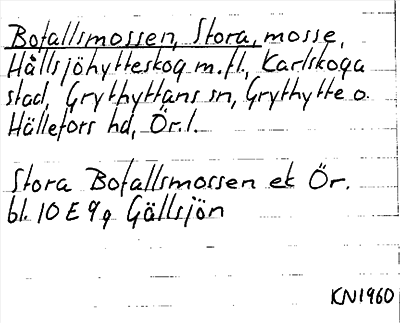 Bofallsmossen, Stora, mosse,
Hållsjöhytteskog m.fl., Karlskoga
stad, Grythyttans sn, Grythytte o.
Hällefors hd, Ör. l.
Stora Bofallsmossen ek Ör.
bl. 10 E 9 g Gällsjön
KN1960